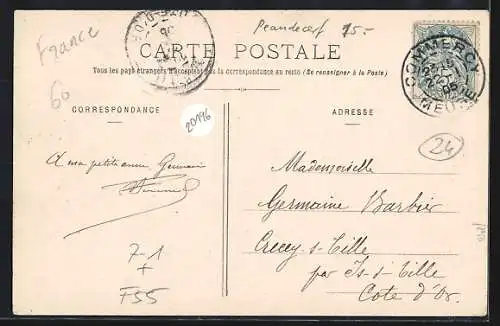 France
60
15.-
CARTE POSTALE
Tous les pays étrangers n'acceptent pas la correspondance au recto (Se renseigner à la Poste)
COMMERCY
MEUSE
CORRESPONDANCE
ADRESSE
20196
24
A ma petite amie Germaine
Mademoiselle
Germaine Barbier
Crecey-s-Tille
par Is-s-Tille
Cote d'Or.
7-1
+
F55